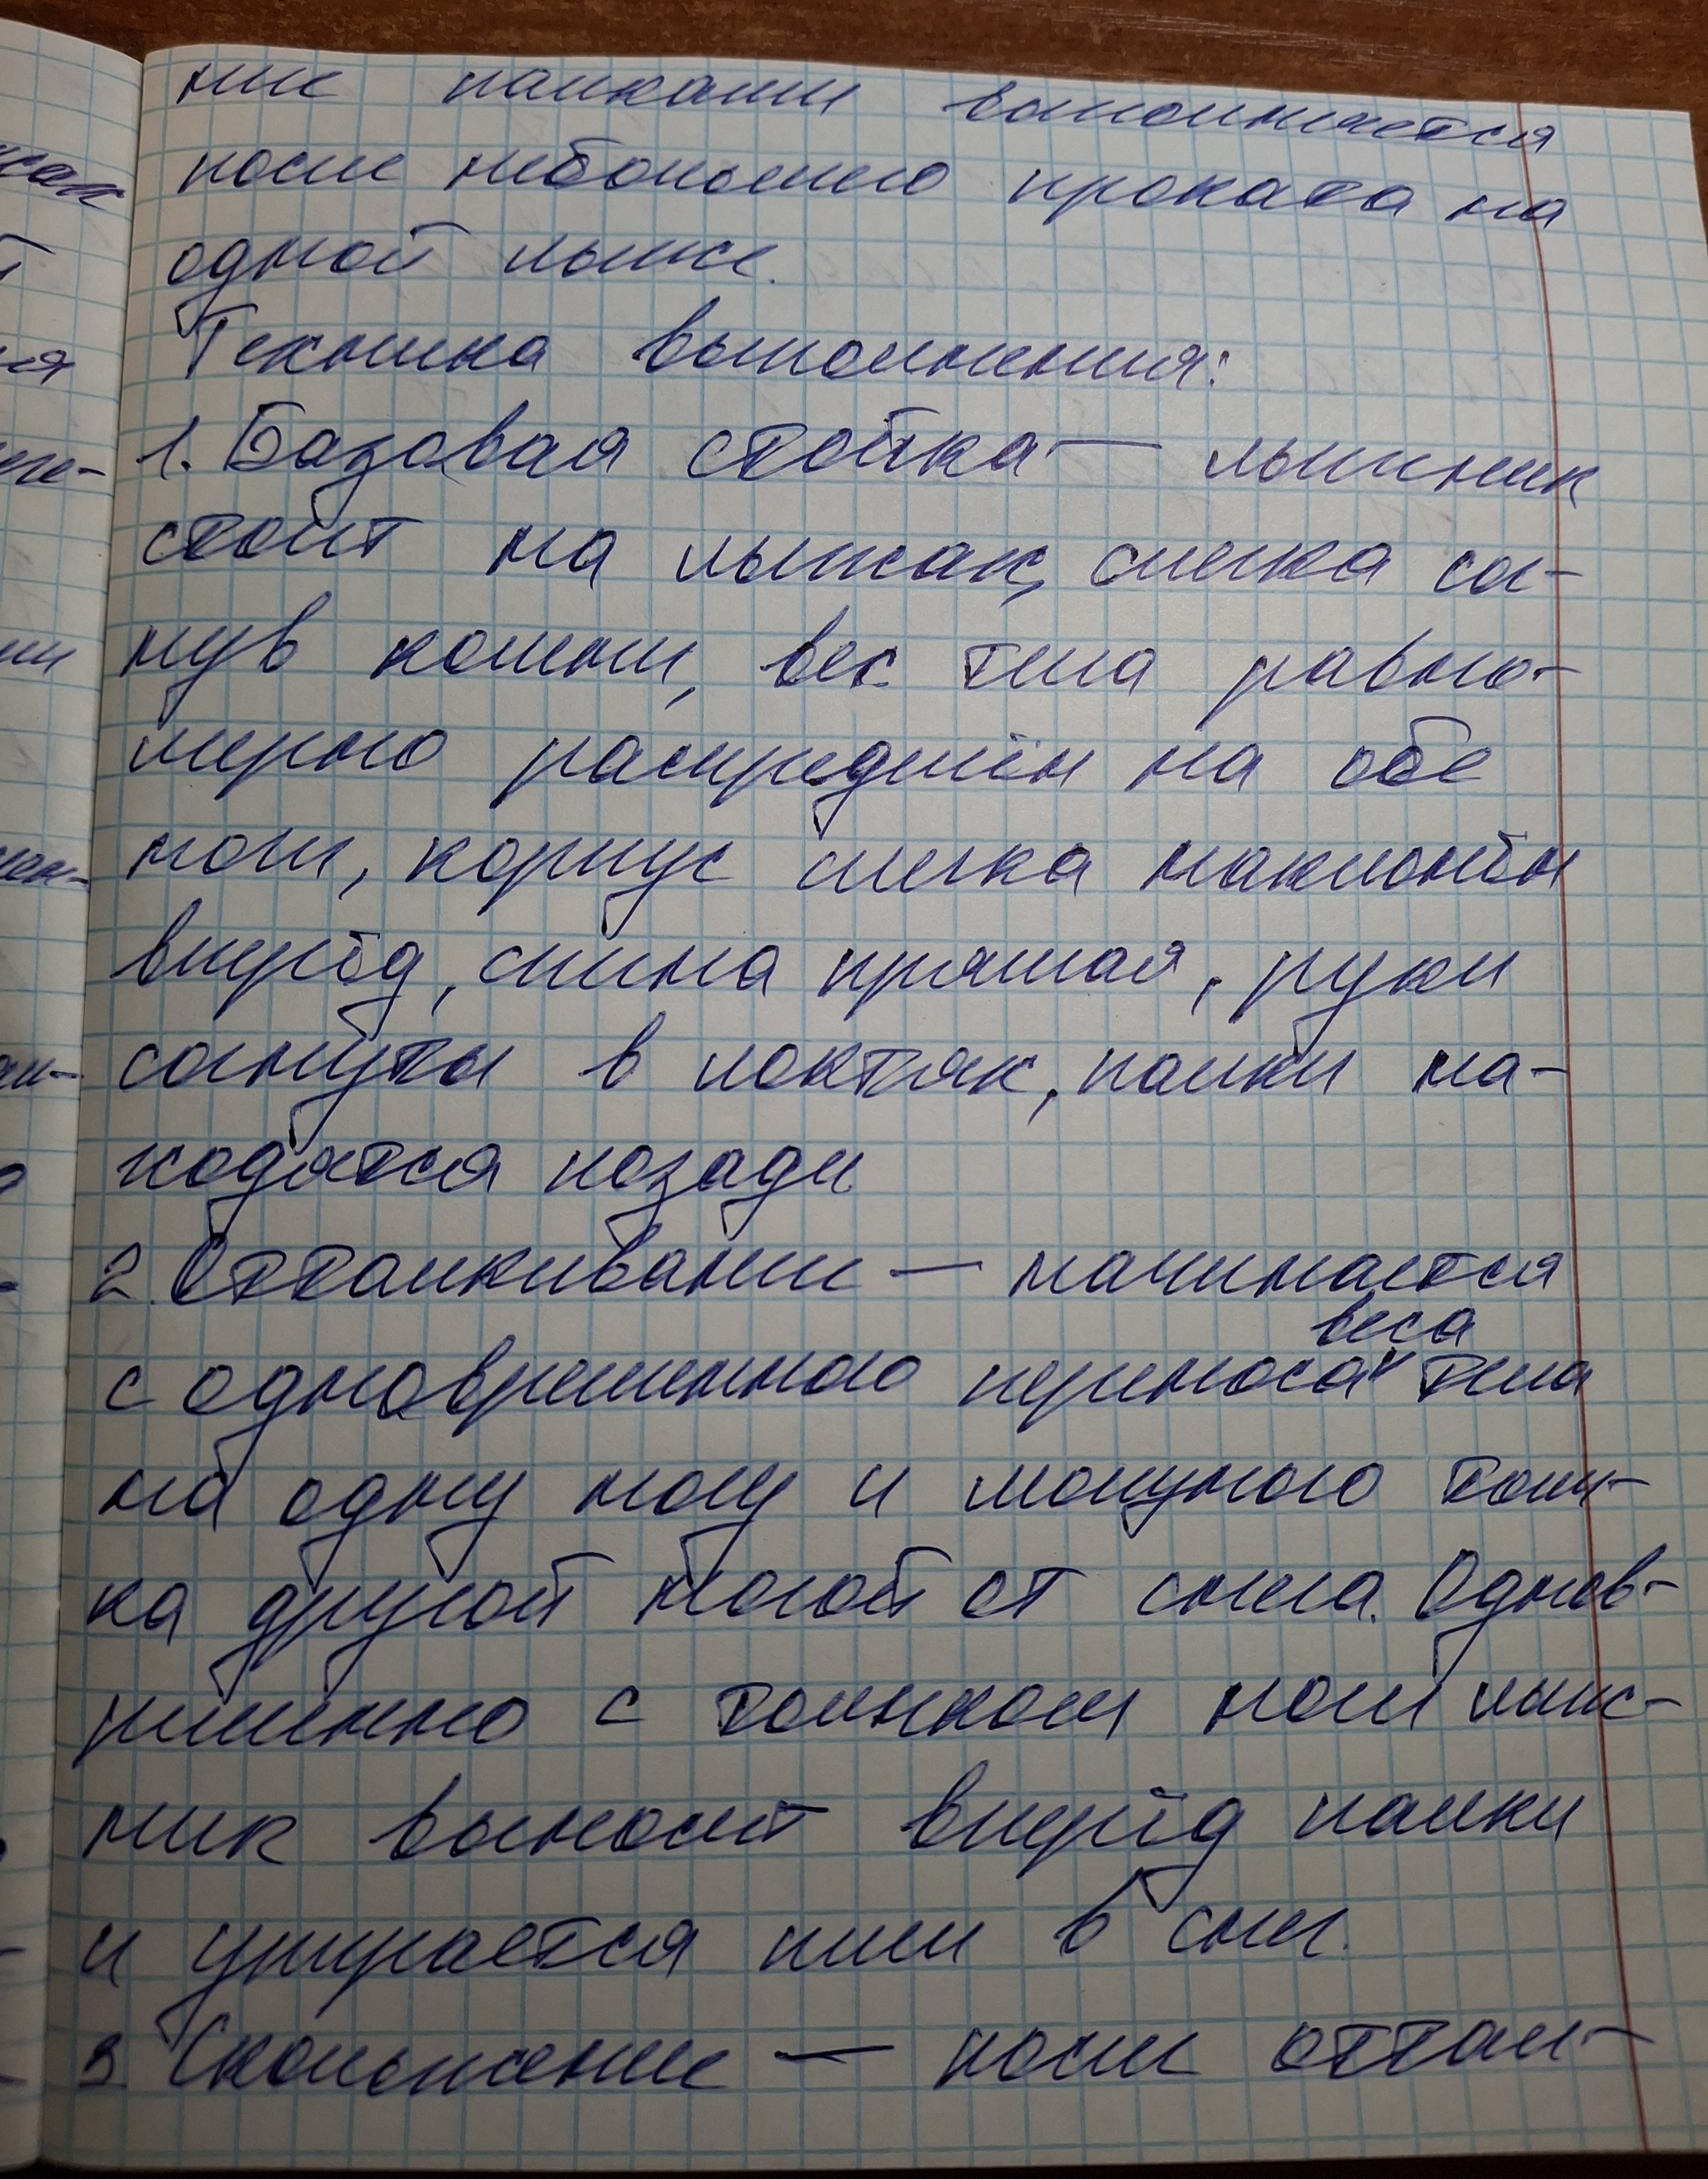 ние палками выполняется
после небольшего проката на
одной лыже.
Техника выполнения:
1. Базовая стойка — лыжник
стоит на лыжах, слегка сог-
нув колени, вес тела равно-
мерно распределён на обе
ноги, корпус слегка наклонён
вперёд, спина прямая, руки
согнуты в локтях, палки на-
ходятся позади
2. Отталкивание — начинается
веса
с одновременного переноса тела
на одну ногу и мощного толч-
ка другой ногой от снега. Однов-
ременно с толчком ноги лыж-
ник выносит вперёд палки
и упирается ими в снег.
3. Скольжение — после оттал-